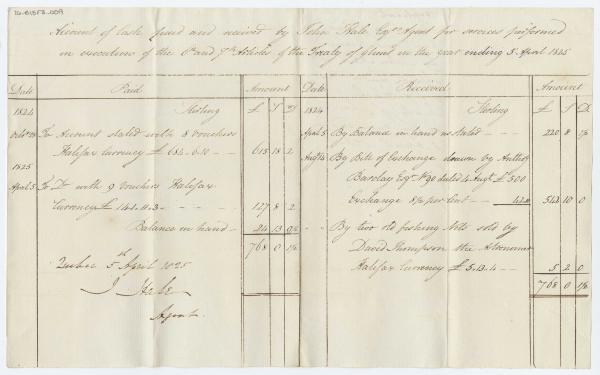 IG-B15F3-009
Account of Cash paid and received by John Hale Esqr. Agent for services performed
in execution of the 6th and 7th Articles of the Treaty of Ghent in the year ending 5 April 1825
Date Paid Amount
1824 Sterling £ S D
Octob 23 To Account stated with 8 vouchers
Halifax Currency £ 684. 6. 10 - - 615 18 2
1825
April 5 To Do with 9 vouchers Halifax
Currency £ 141. 11. 3 - - 127 8 2
Balance in hand - 24 13 9½
768 0 1½
Quebec 5th April 1825
J Hale
Agent
Date Received Amount
1824 Sterling £ S D
April 5 By Balance in hand as stated - - 220 8 1½
Augt By Bill of Exchange drawn by Anthy
Barclay Esqr No 90 dated 4 Augt £ 500
Exchange 8½ per Cent - - 542 10 0
By two old fishing Nets sold by
David Thompson the Astronomer
Halifax Currency £ 5. 13. 4 - - 5 2 0
768 0 1½